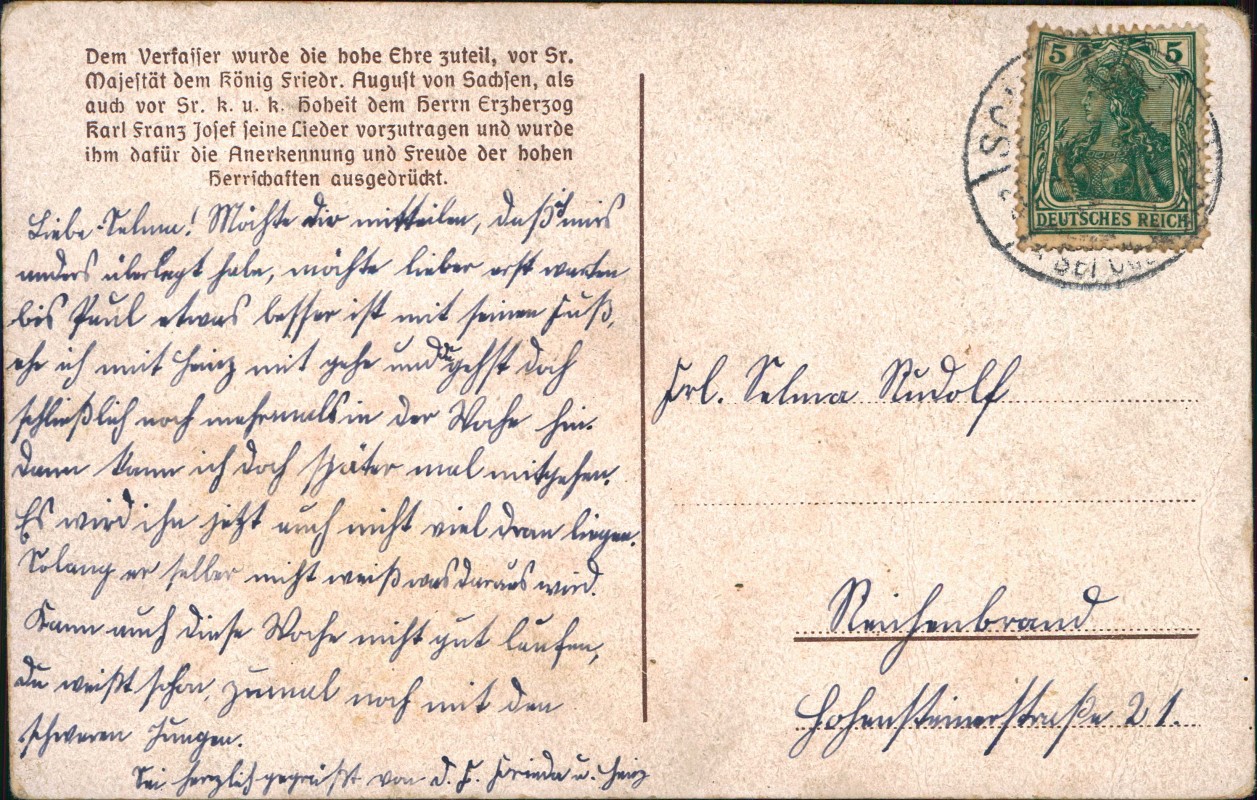 Dem Verfasser wurde die hohe Ehre zuteil, vor Sr.
Majestät dem König Friedr. August von Sachsen, als
auch vor Sr. k. u. k. Hoheit dem Herrn Erzherzog
Karl Franz Josef seine Lieder vorzutragen und wurde
ihm dafür die Anerkennung und Freude der hohen
Herrschaften ausgedrückt.
Liebe Selma! Möchte dir mitteilen, daß ich mirs
anders überlegt habe, möchte lieber erst warten
bis Paul etwas besser ist mit seinen Fuß,
ehe ich mit Heinz mit gehe und du gehst doch
schließlich noch mehrmals in der Woche hin.
Dann kann ich doch später mal mitgehen.
Es wird ihn jetzt auch nicht viel dran liegen.
Solang er selber nicht weiß was daraus wird.
Kann auch diese Woche nicht gut laufen,
du weißt schon, zumal noch mit den
schweren Jungen.
Sei herzlich gegrüßt von d. F. Frieda u. Heinz
5 5
DEUTSCHES REICH
BEI
Frl. Selma Rudolf
Reichenbrand
Hohensteinerstraße 21.